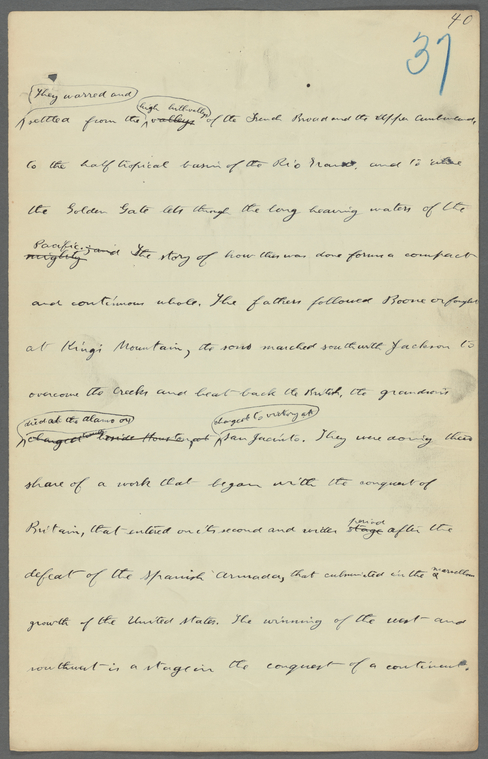 40
37
They warred and
high hill valleys
settled from the valleys of the French Broad and the Upper Cumberland,
to the half tropical basin of the Rio Grande, and to where
the Golden Gate lets through the long heaving waters of the
Pacific.
mightily and The story of how this was done forms a compact
and continuous whole. The fathers followed Boone or fought
at King's Mountain, the sons marched south with Jackson to
overcome the Creeks and beat back the British, the grandsons
died at the Alamo or
charged to victory at
charged inside Houston at San Jacinto. They were doing their
share of a work that began with the conquest of
period
Britain, that entered on its second and wider stage after the
defeat of the Spanish Armada, that culminated in the marvellous
growth of the United States. The winning of the west and
southwest is a stage in the conquest of a continent.